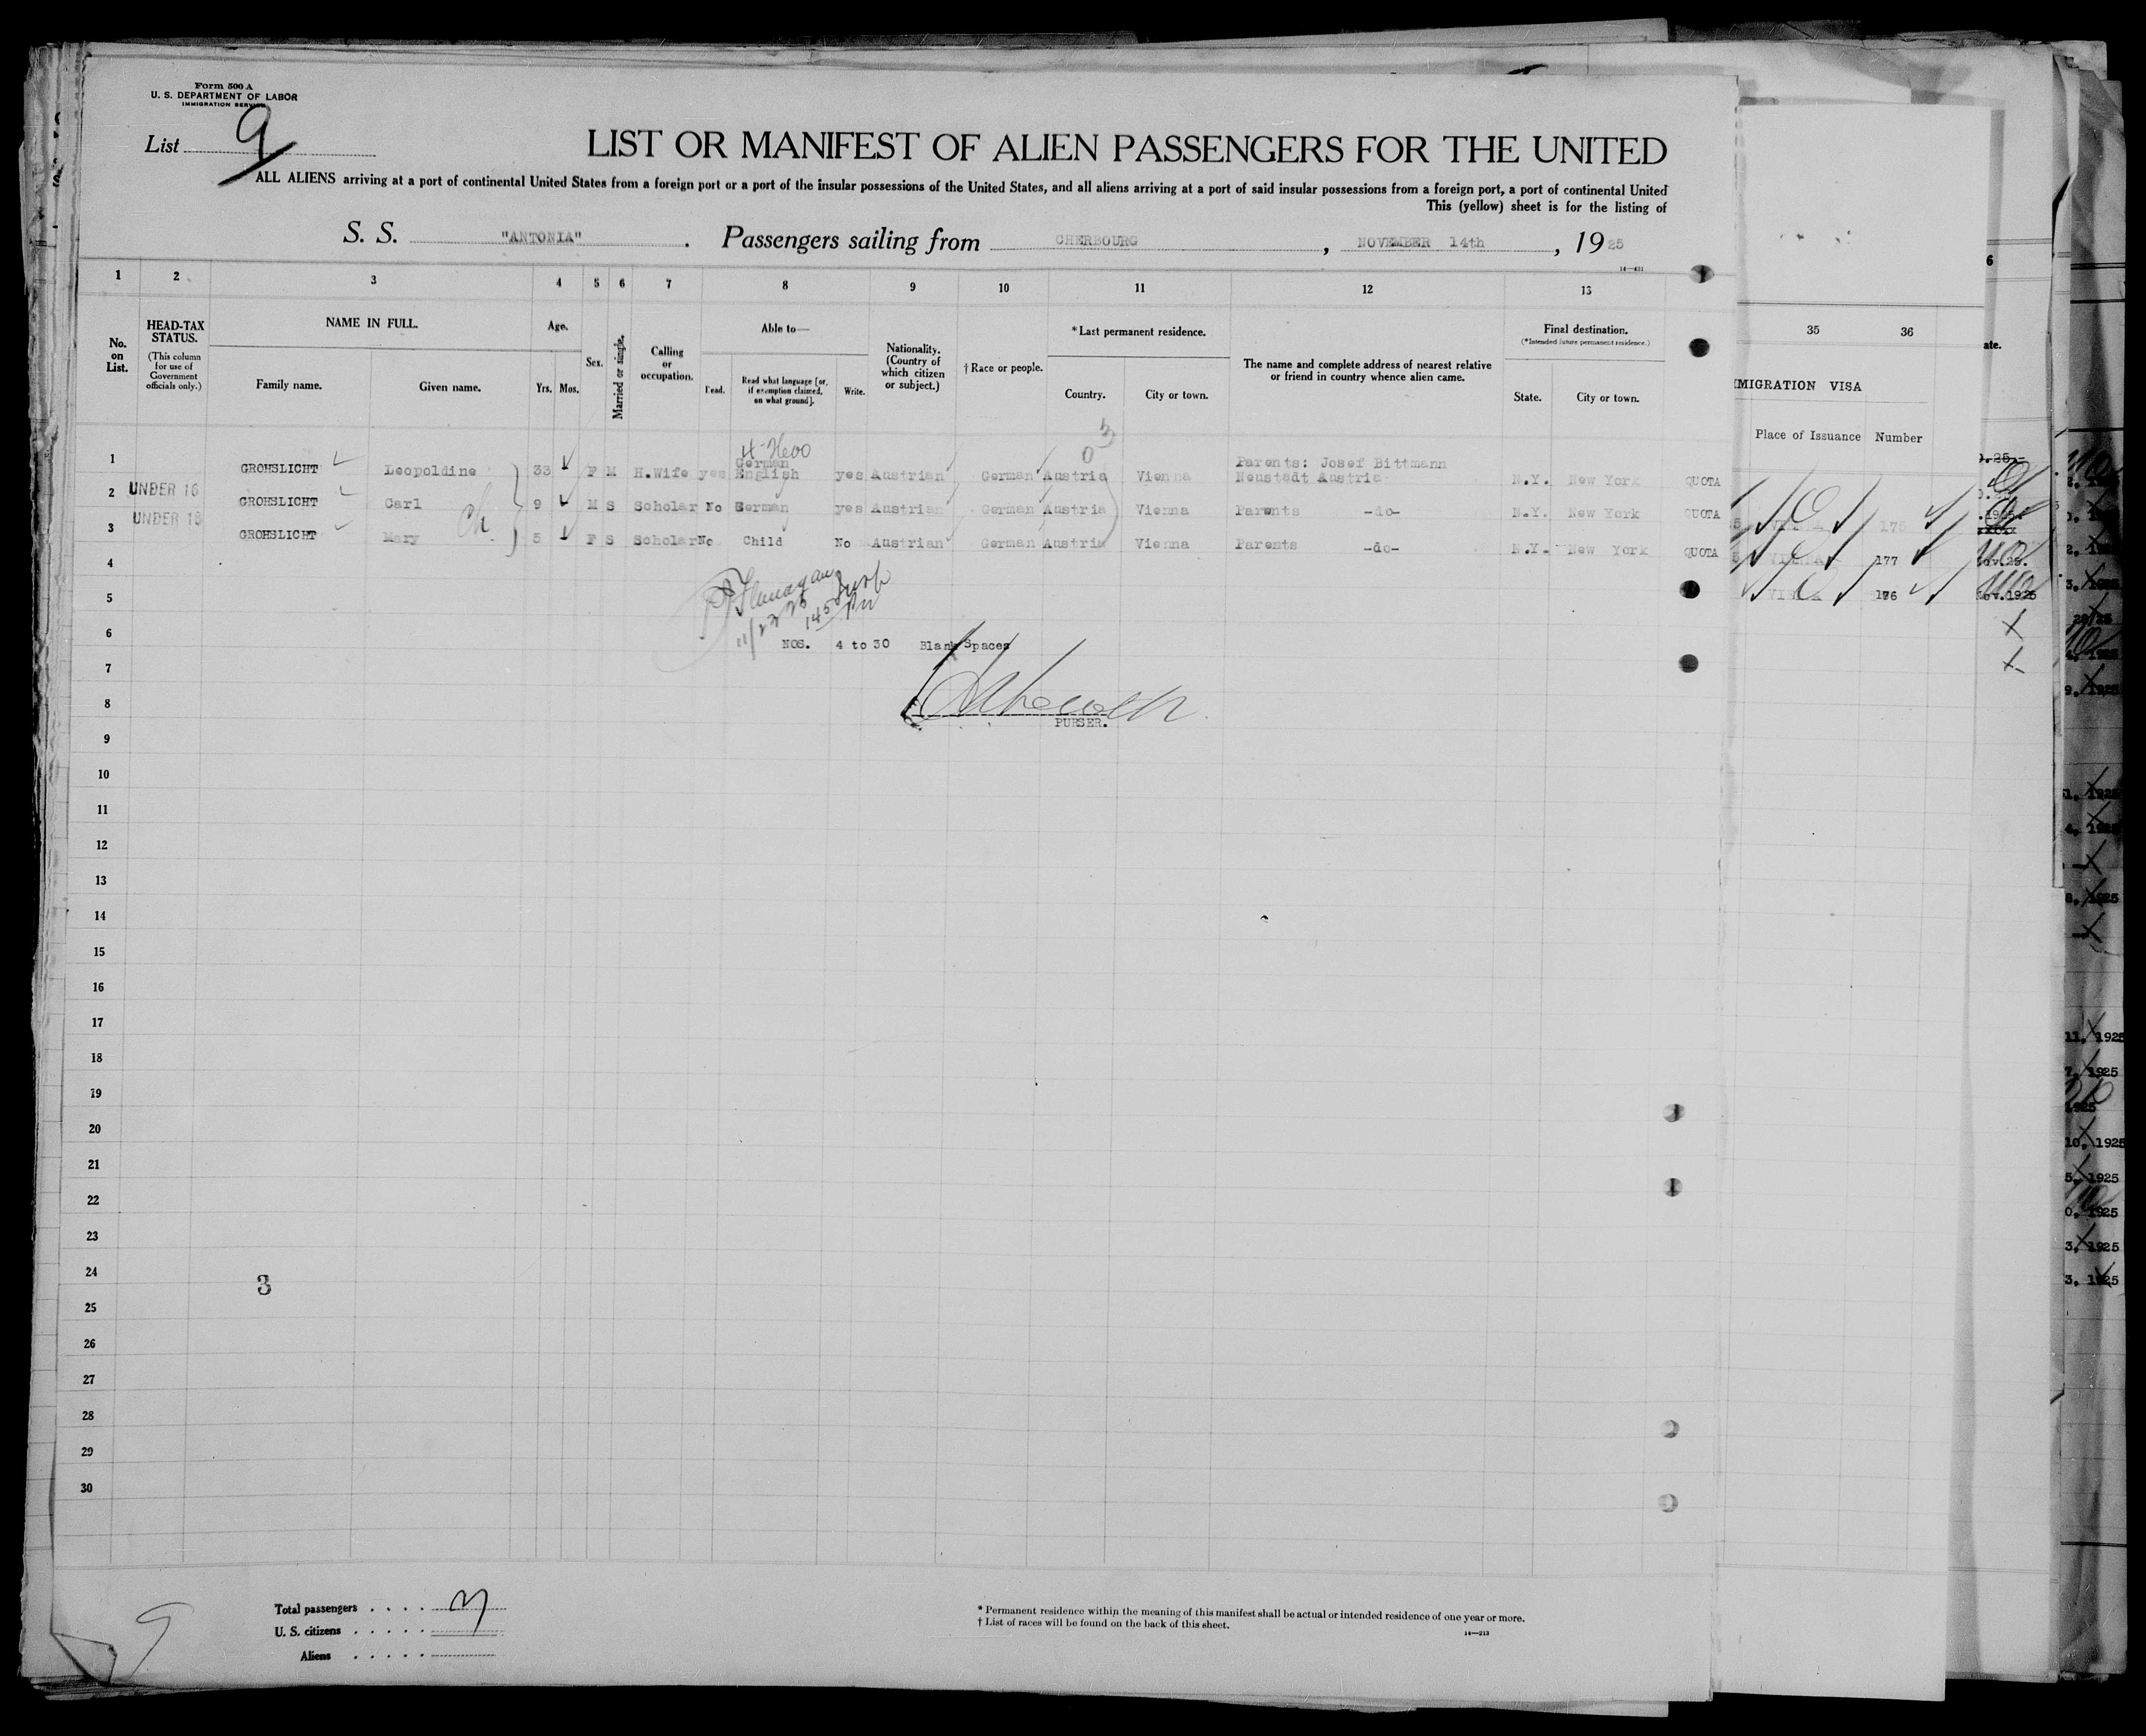 Form 500 A
U. S. DEPARTMENT OF LABOR
IMMIGRATION SERVICE
List 9
LIST OR MANIFEST OF ALIEN PASSENGERS FOR THE UNITED
ALL ALIENS arriving at a port of continental United States from a foreign port or a port of the insular possessions of the United States, and all aliens arriving at a port of said insular possessions from a foreign port, a port of continental United
This (yellow) sheet is for the listing of
S. S. "ANTONIA". Passengers sailing from CHERBOURG, NOVEMBER 14th, 1925
14—431
1 2 3 4 5 6 7 8 9 10 11 12 13
No. on List.
HEAD-TAX STATUS.
(This column for use of Government officials only.)
NAME IN FULL.
Family name. Given name.
Age.
Yrs. Mos.
Sex.
Married or single.
Calling or occupation.
Able to—
Read. Read what language [or, if exemption claimed, on what ground]. Write.
Nationality. (Country of which citizen or subject.)
†Race or people.
*Last permanent residence.
Country. City or town.
The name and complete address of nearest relative or friend in country whence alien came.
Final destination.
(*Intended future permanent residence.)
State. City or town.
35 36
MIGRATION VISA
Place of Issuance Number
6
ate.
1 GROHSLICHT Leopoldine 33 F M H.Wife yes German English yes Austrian German Austria Vienna Parents: Josef Bittmann Neustadt Austria N.Y. New York QUOTA
2 UNDER 16 GROHSLICHT Carl 9 M S Scholar No German yes Austrian German Austria Vienna Parents -do- N.Y. New York QUOTA
3 UNDER 16 GROHSLICHT Mary 5 F S Scholar No Child No Austrian German Austria Vienna Parents -do- N.Y. New York QUOTA
175
177
176
4
5
6
NOS. 4 to 30 Blank Spaces
7
8
PURSER.
9
10
11
12
13
14
15
16
17
18
19
20
21
22
23
24
3
25
26
27
28
29
30
Total passengers . . . . 3
U. S. citizens . . . . .
Aliens . . . . .
* Permanent residence within the meaning of this manifest shall be actual or intended residence of one year or more.
† List of races will be found on the back of this sheet.
14—213